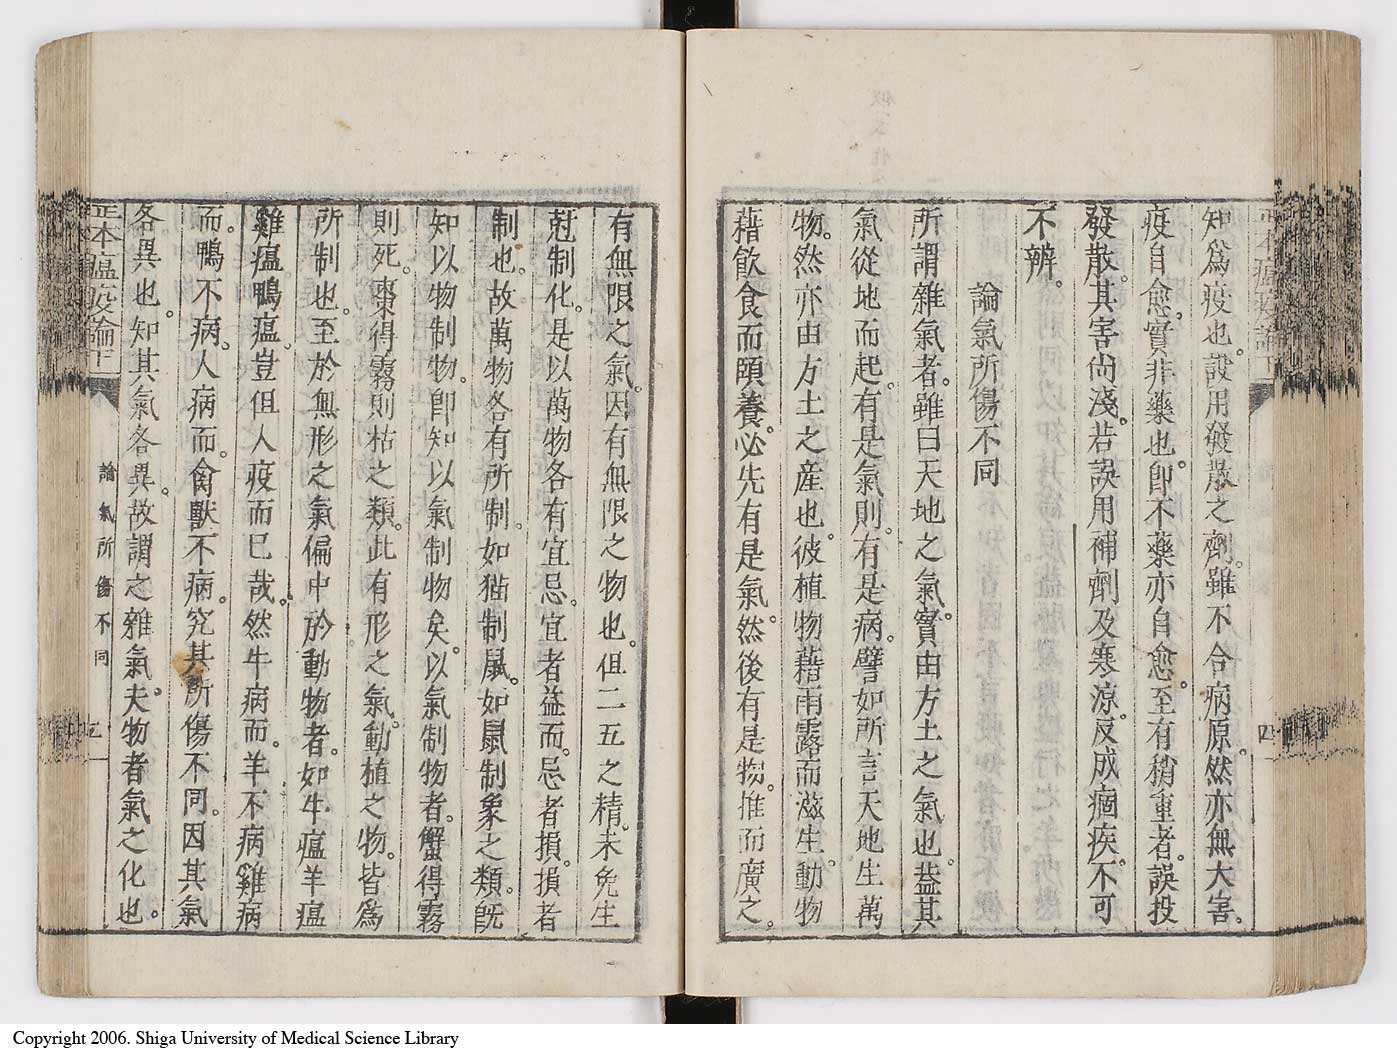 知爲疫也。設用發散之劑。雖不合病原。然亦無大害。
疫自愈。實非藥也。卽不藥亦自愈。至有稍重者。誤投
發散。其害尚淺。若誤用補劑及寒涼。反成痼疾。不可
不辨。
論氣所傷不同
所謂雜氣者。雖曰天地之氣。實由方土之氣也。葢其
氣從地而起。有是氣則。有是病。譬如所言天地生萬
物。然亦由方土之産也。彼植物藉雨露而滋生。動物
藉飲食而頤養。必先有是氣。然後有是物。推而廣之。
四
有無限之氣。因有無限之物也。但二五之精。未免生
尅制化。是以萬物各有宜忌。宜者益而。忌者損。損者
制也。故萬物各有所制。如猫制鼠。如鼠制象之類。旣
知以物制物。卽知以氣制物矣。以氣制物者。蟹得霧
則死。棗得霧則枯之類。此有形之氣。動植之物。皆爲
所制也。至於無形之氣偏中於動物者。如牛瘟羊瘟
雞瘟鴨瘟。豈但人疫而已哉。然牛病而。羊不病雞病
而。鴨不病。人病而。禽獸不病。究其所傷不同。因其氣
各異也。知其氣各異。故謂之雜氣。夫物者氣之化也。
正本瘟疫論下
論氣所傷不同
五
Copyright 2006. Shiga University of Medical Science Library